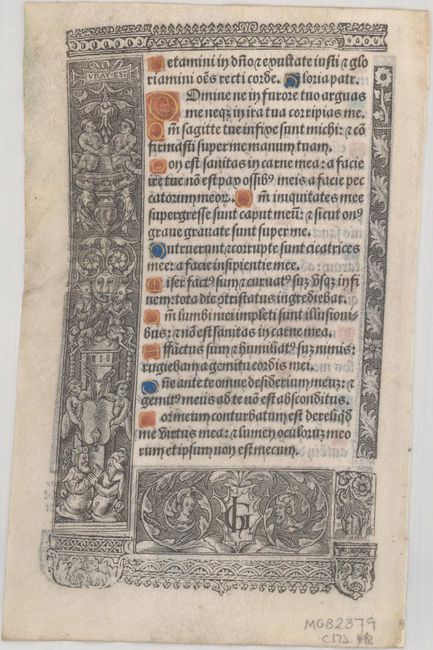 VRAY EST
Letamini in dño ⁊ exultate iusti ⁊ glo
riamini oẽs recti corde. Gloria patr.
Domine ne in furore tuo arguas
me neqꝫ in ira tua corripias me.
Qm̃ sagitte tue infixe sunt michi: ⁊ cõ
firmasti super me manum tuam.
Non est sanitas in carne mea: a facie
ire tue nõ est pax ossibꝰ meis a facie pec
catorum meoꝝ. Qm̃ iniquitates mee
supergresse sunt caput meũ: ⁊ sicut onꝰ
graue grauate sunt super me.
Putruerunt ⁊ corrupte sunt cicatrices
mee: a facie insipientie mee.
Miser factꝰ sum ⁊ curuatꝰ suꝫ vsqꝫ in fi
nem: tota die ꝯtristatus ingrediebar.
Qm̃ lumbi mei impleti sunt illusioni-
bus: ⁊ nõ est sanitas in carne mea.
Afflictus sum ⁊ humiliatꝰ suꝫ nimis:
rugiebam a gemitu cordis mei.
Dñe ante te omne desiderium meuꝫ: ⁊
gemitꝰ meus ad te nõ est absconditus.
Cor meum conturbatum est dereliqͥt
me virtus mea: ⁊ lumen oculoruꝫ meo
rum et ipsum non est mecum.
GL
MG82379